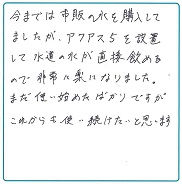 今までは市販の水を購入して
ましたが、アクアス5を設置
して水道の水が直接飲める
ので非常に楽になりました。
まだ使い始めたばかりですが
これからも使い続けたいと思います